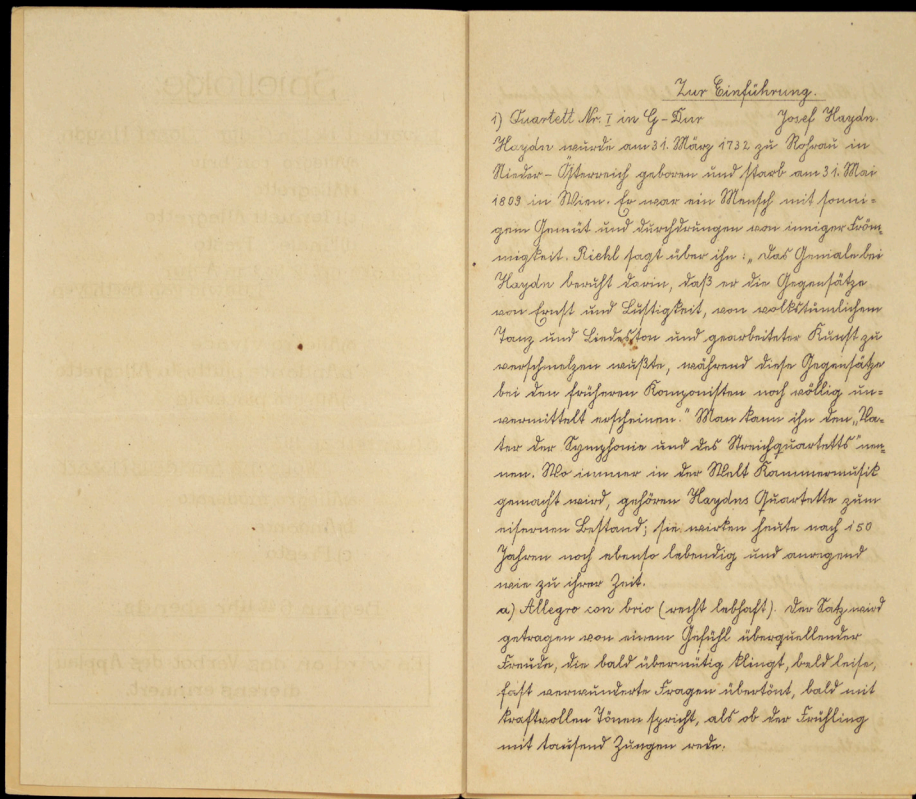 Zur Einführung.
1) Quartett Nr. I in G-Dur Josef Haydn.
Haydn wurde am 31. März 1732 zu Rohrau in
Nieder-Österreich geboren und starb am 31. Mai
1809 in Wien. Er war ein Mensch mit sonni=
gem Gemüt und durchdrungen von inniger Fröm=
migkeit. Riehl sagt über ihn: „Das Geniale bei
Haydn beruht darin, daß er die Gegensätze
von Ernst und Lustigkeit, von volkstümlichem
Tanz und Liedeston und gearbeiteter Kunst zu
verschmelzen wußte, während diese Gegensätze
bei den früheren Komponisten noch völlig un=
vermittelt erscheinen." Man kann ihn den „Va=
ter der Symphonie und des Streichquartetts" nen=
nen. Wo immer in der Welt Kammermusik
gemacht wird, gehören Haydns Quartette zum
eisernen Bestand; sie wirken heute nach 150
Jahren noch ebenso lebendig und anregend
wie zu ihrer Zeit.
a) Allegro con brio (recht lebhaft). Der Satz wird
getragen von einem Gefühl überquellender
Freude, die bald übermütig klingt, bald leise,
fast verwunderte Fragen übertönt, bald mit
kraftvollen Tönen spricht, als ob der Frühling
mit tausend Zungen rede.